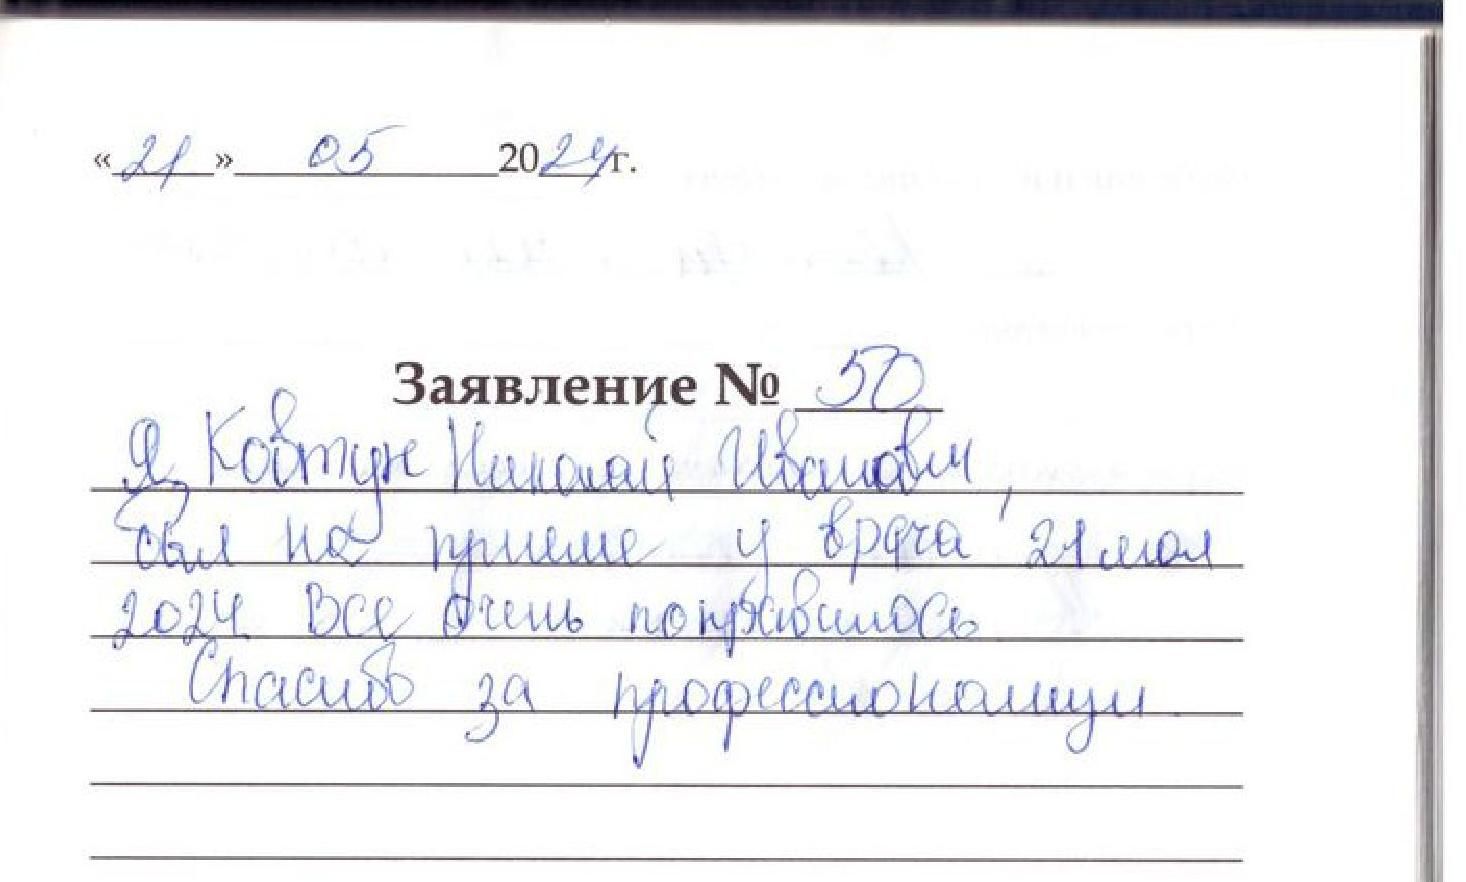 «21» 05 2024г.
Заявление № 50
Я, Ковтун Николай Иванович,
был на приеме у врача 21 мая
2024. Все очень понравилось
Спасибо за профессионализм.